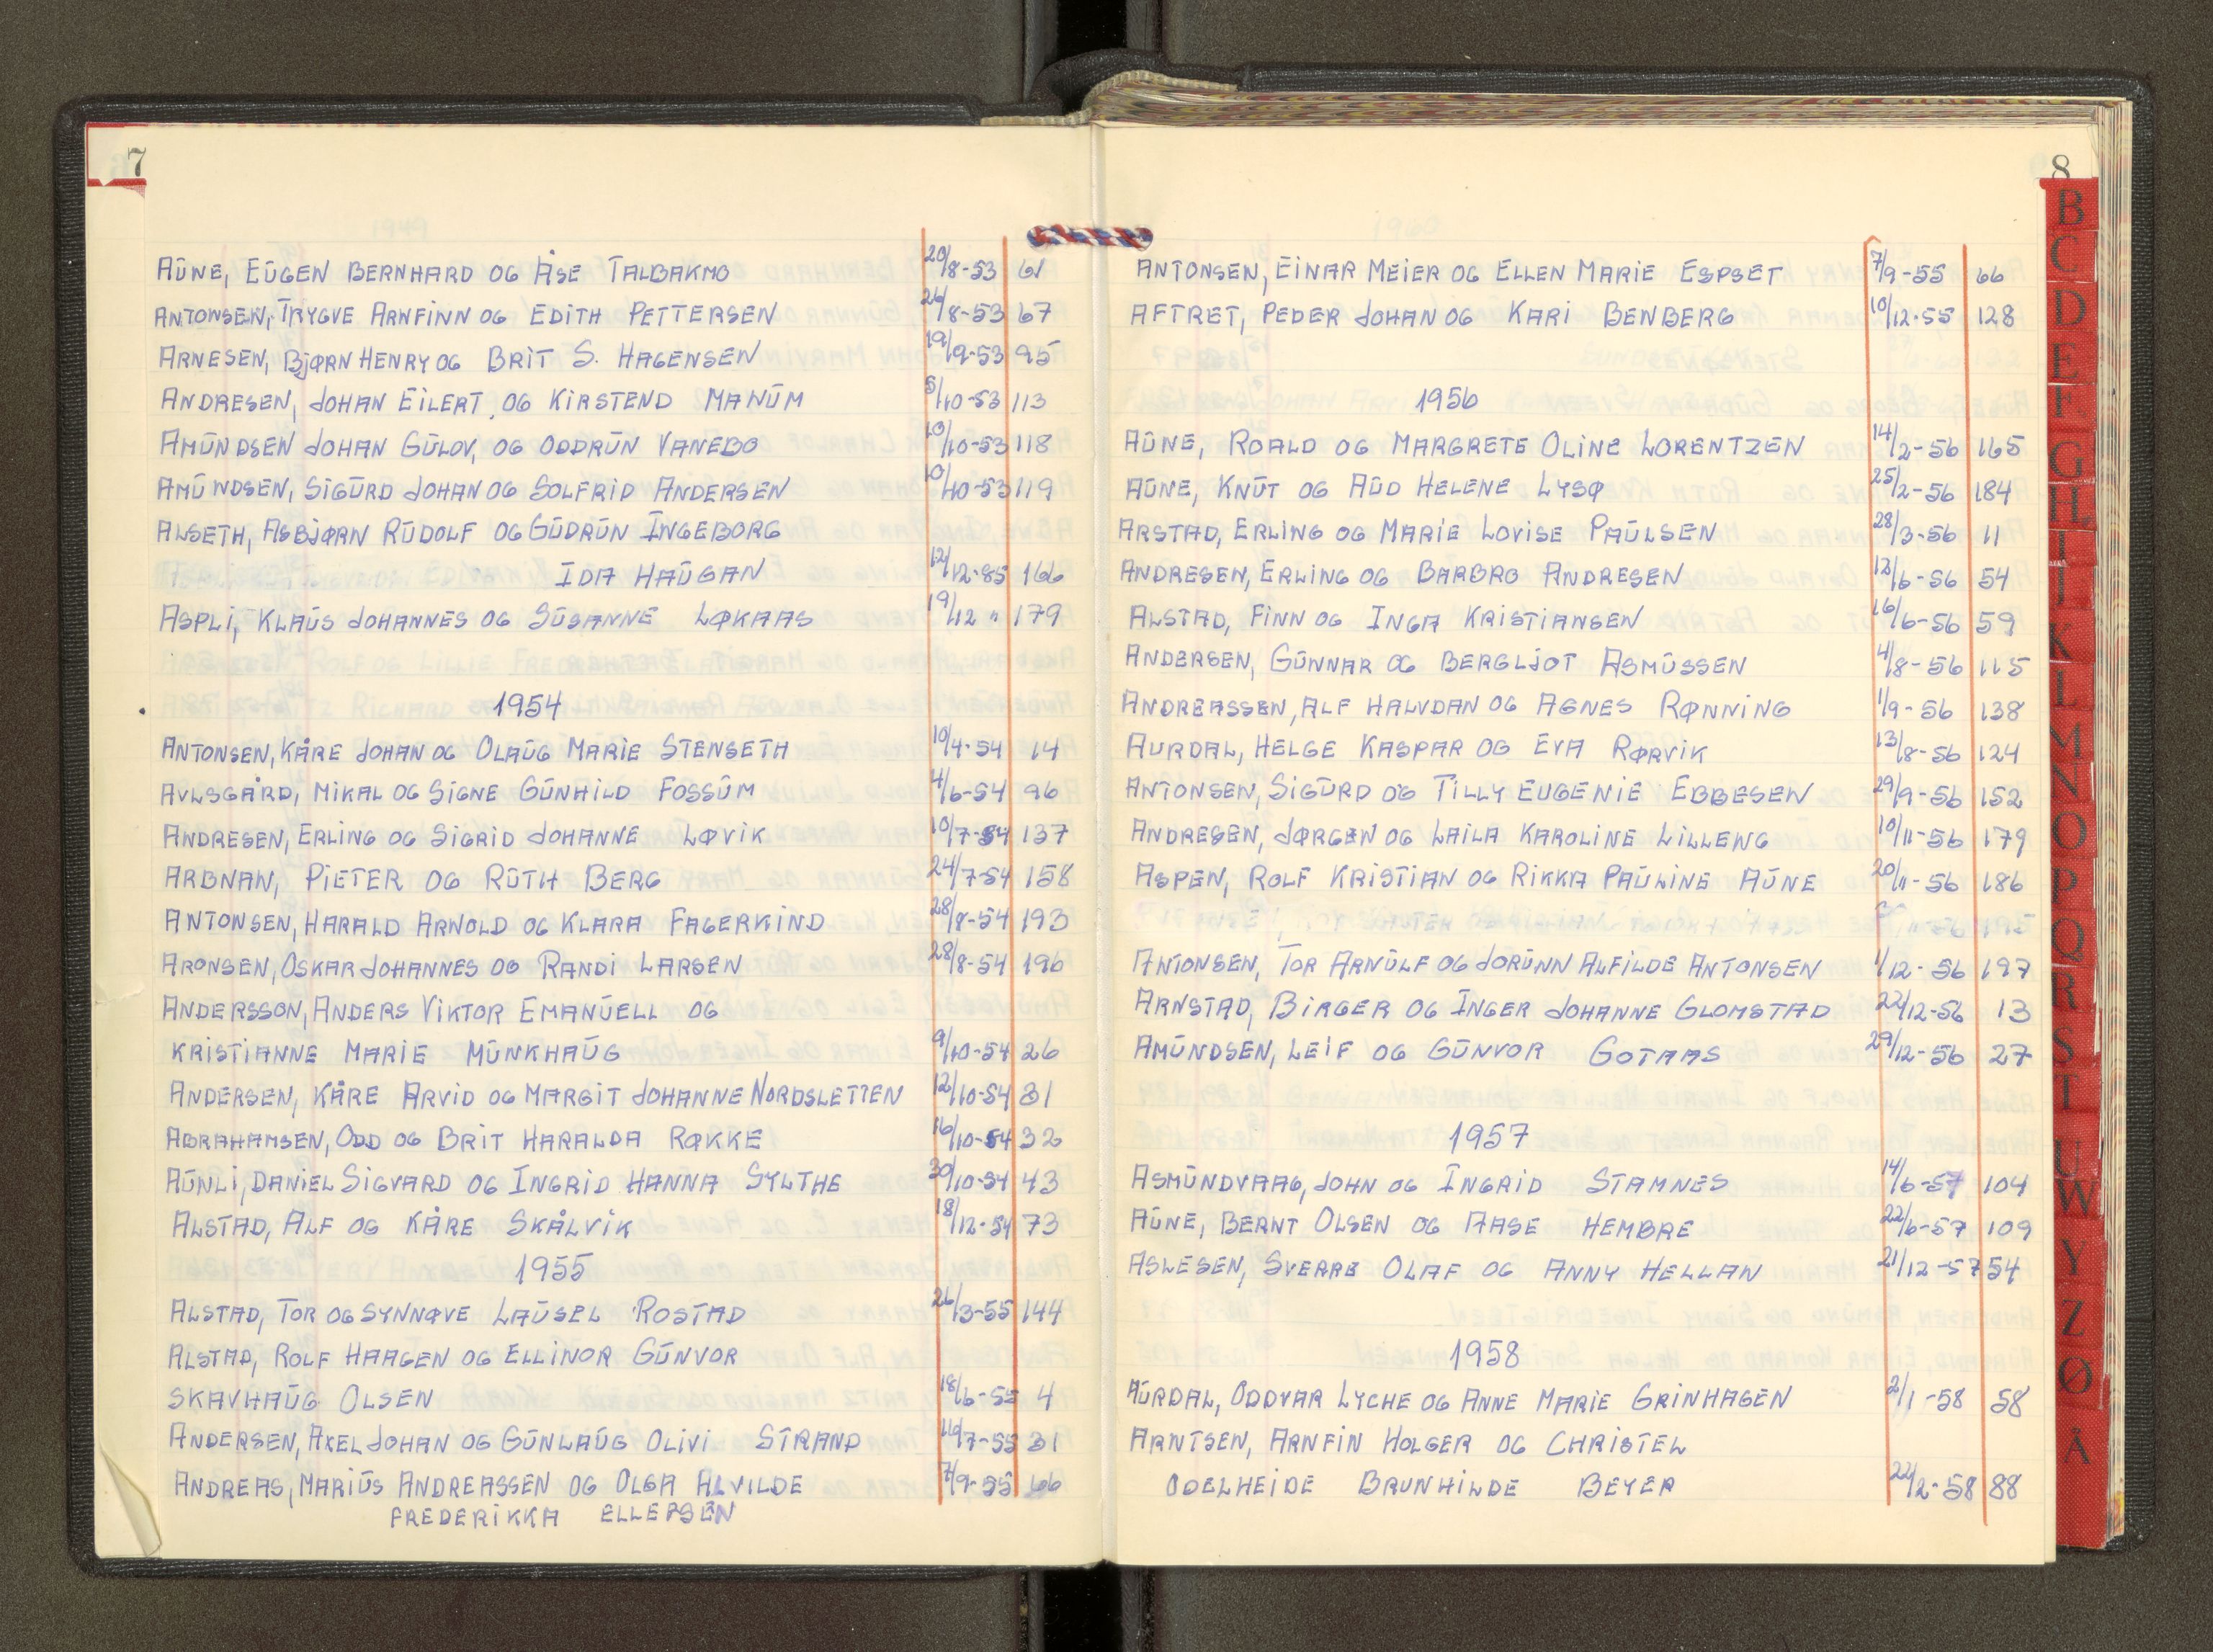 7
AŪNE, EŪGEN BERNHARD OG ÅSE TALBAKMO 20/8-53 61
ANTONSEN, TRYGVE ARNFINN OG EDITH PETTERSEN 26/8-53 67
ARNESEN, BJØRN HENRY OG BRIT S. HAGENSEN 19/9-53 95
ANDRESEN, JOHAN EILERT, OG KIRSTEND MANŪM 5/10-53 113
AMŪNDSEN JOHAN GŪLOV, OG ODDRŪN VANEBO 10/10-53 118
AMŪNDSEN, SIGŪRD JOHAN OG SOLFRID ANDERSEN 10/10-53 119
ALSETH, ASBJØRN RŪDOLF OG GŪDRŪN INGEBORG
IDA HAŪGAN 12/12-85 166
ASPLI, KLAŪS JOHANNES OG SŪSANNE LØKAAS 19/12 " 179
1954
ANTONSEN, KÅRE JOHAN OG OLAŪG MARIE STENSETH 10/4-54 14
AVLSGÅRD, MIKAL OG SIGNE GŪNHILD FOSSŪM 4/6-54 96
ANDRESEN, ERLING OG SIGRID JOHANNE LØVIK 10/7-54 137
ARBNAN, PIETER OG RŪTH BERG 24/7-54 158
ANTONSEN, HARALD ARNOLD OG KLARA FAGERKIND 28/8-54 193
ARONSEN, OSKAR JOHANNES OG RANDI LARSEN 28/8-54 196
ANDERSSON, ANDERS VIKTOR EMANŪELL OG
KRISTIANNE MARIE MŪNKHAŪG 9/10-54 26
ANDERSEN, KÅRE ARVID OG MARGIT JOHANNE NORDSLETTEN 12/10-54 31
ABRAHAMSEN, ODD OG BRIT HARALDA RØKKE 16/10-54 32
AŪNLI, DANIEL SIGVARD OG INGRID HANNA SYLTHE 30/10-54 43
ALSTAD, ALF OG KÅRE SKÅLVIK 18/12-54 73
1955
ALSTAD, TOR OG SYNNØVE LAŪSEL ROSTAD 26/3-55 144
ALSTAD, ROLF HAAGEN OG ELLINOR GŪNVOR
SKAVHAŪG OLSEN 18/6-55 4
ANDERSEN, AXEL JOHAN OG GŪNLAŪG OLIVI STRAND /7-55 31
ANDREAS, MARIŪS ANDREASSEN OG OLGA ALVILDE 7/9-55 66
FREDERIKKA ELLEFSEN
8
ANTONSEN, EINAR MEIER OG ELLEN MARIE ESPSET 7/9-55 66
AFTRET, PEDER JOHAN OG KARI BENBERG 10/12-55 128
1956
AŪNE, ROALD OG MARGRETE OLINE LORENTZEN 14/2-56 165
AŪNE, KNŪT OG AŪD HELENE LYSØ 25/2-56 184
ARSTAD, ERLING OG MARIE LOVISE PAŪLSEN 28/3-56 11
ANDRESEN, ERLING OG BARBRO ANDRESEN 12/6-56 54
ALSTAD, FINN OG INGA KRISTIANSEN 16/6-56 59
ANDERSEN, GŪNNAR OG BERGLJOT ASMŪSSEN 4/8-56 115
ANDREASSEN, ALF HALVDAN OG AGNES RØNNING 1/9-56 138
AURDAL, HELGE KASPAR OG EVA RØRVIK 13/8-56 124
ANTONSEN, SIGŪRD OG TILLY EUGENIE EBBESEN 29/9-56 152
ANDRESEN, JØRGEN OG LAILA KAROLINE LILLENG 10/11-56 179
ASPEN, ROLF KRISTIAN OG RIKKA PAŪLINE AŪNE 20/11-56 186
ANTONSEN, TOR ARNŪLF OG JORŪNN ALFILDE ANTONSEN 1/12-56 197
ARNSTAD, BIRGER OG INGER JOHANNE GLOMSTAD 22/12-56 13
AMŪNDSEN, LEIF OG GŪNVOR GOTAAS 29/12-56 27
1957
ASMŪNDVAAG, JOHN OG INGRID STAMNES 14/6-57 104
AŪNE, BERNT OLSEN OG AASE HEMBRE 22/6-57 109
ASLESEN, SVERRE OLAF OG ANNY HELLAN 21/12-57 54
1958
AŪRDAL, ODDVAR LYCHE OG ANNE MARIE GRINHAGEN 2/1-58 58
ARNTSEN, ARNFIN HOLGER OG CHRISTEL
ODELHEIDE BRUNHILDE BEYER 22/2-58 88
B
C
D
E
F
G
H
I
J
K
L
M
N
O
P
Q
R
S
T
U
W
Y
Z
Ø
Å